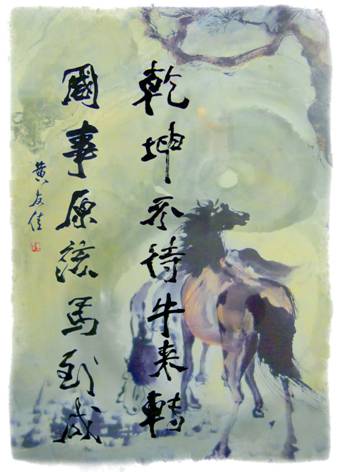 乾坤待牛来轉
國事原該馬到成
黄友佳